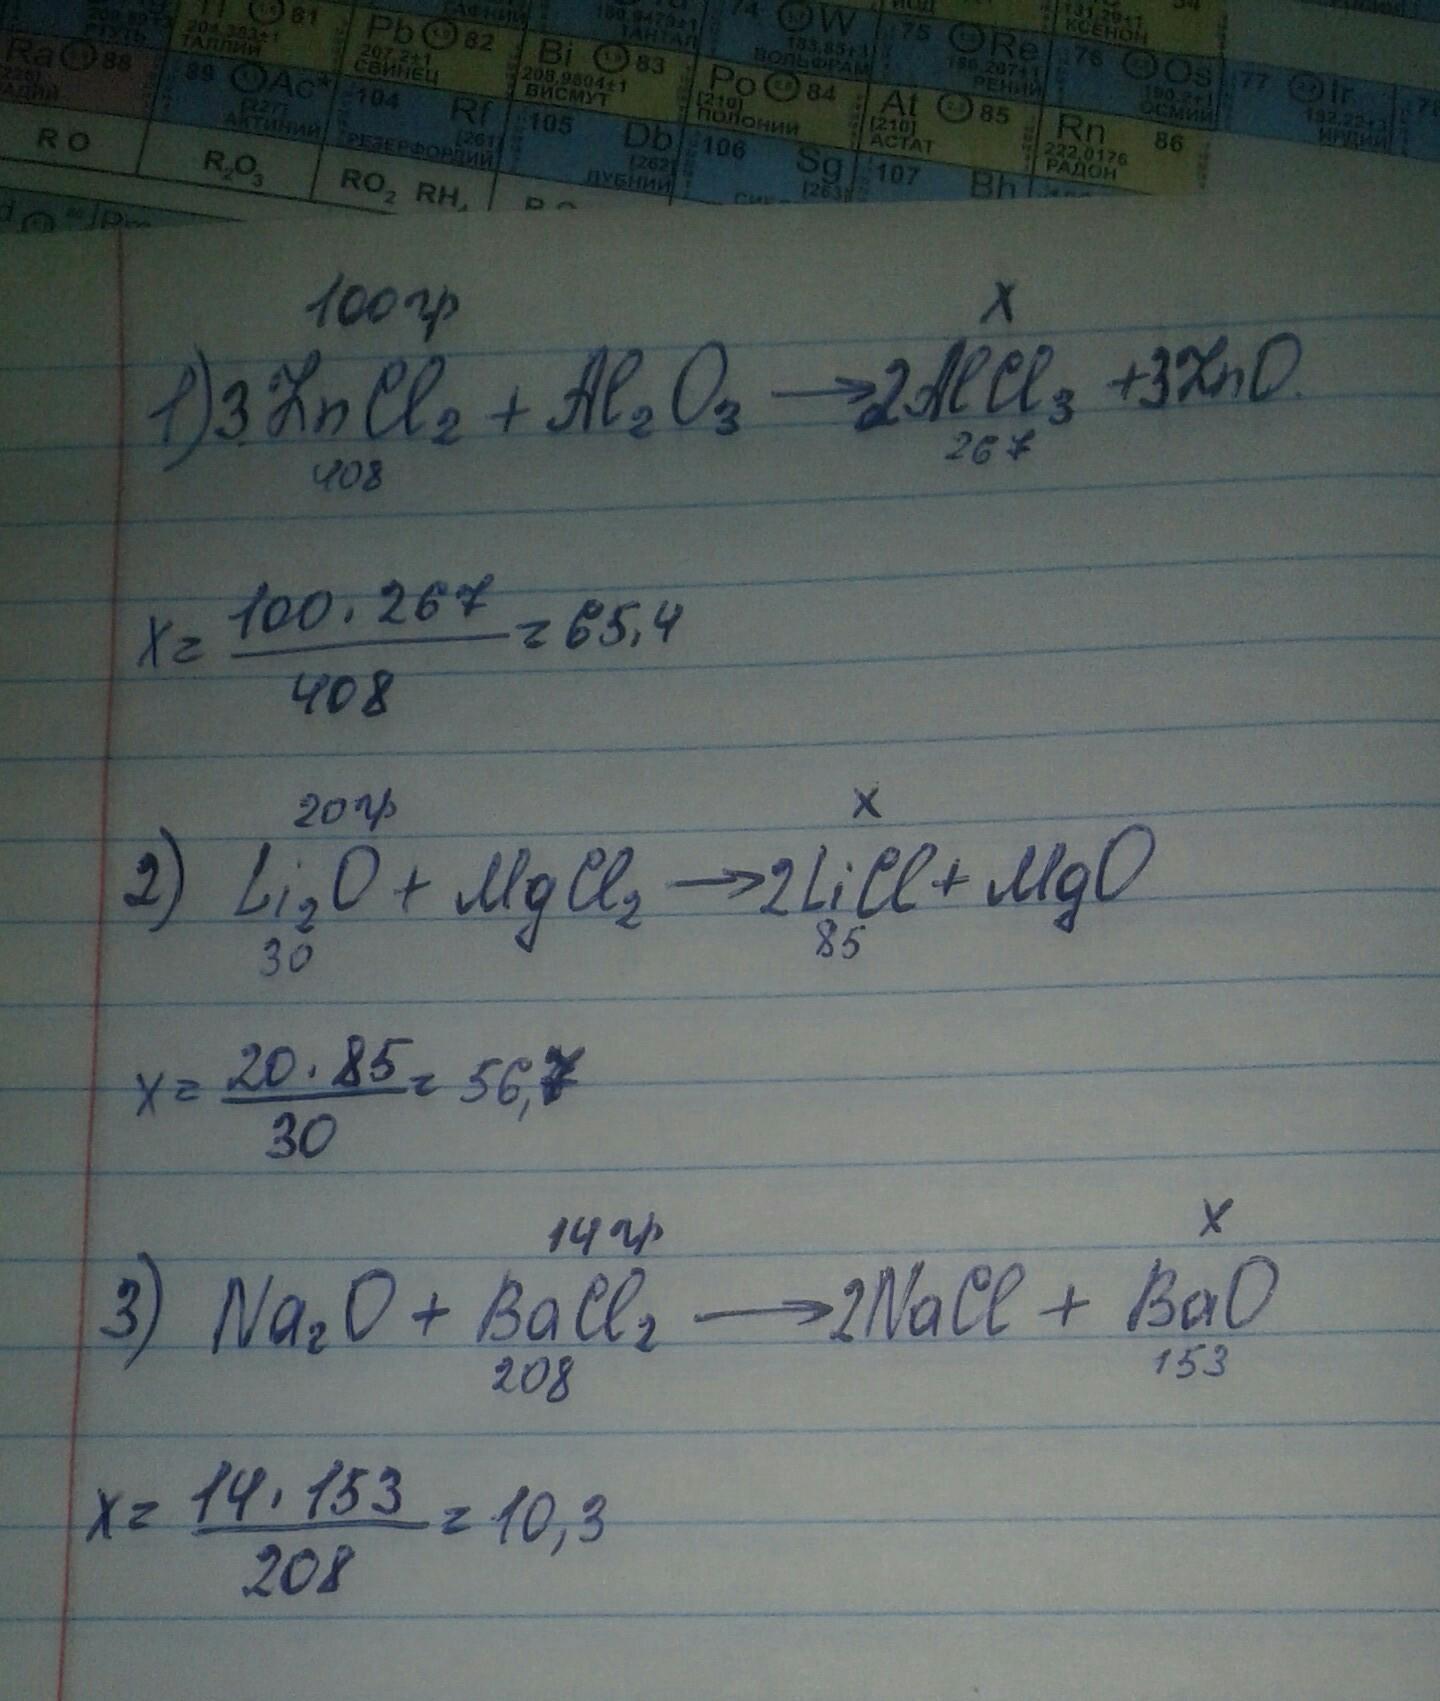 81
204,383±1
ТАЛЛИЙ
Pb 82
207,2±1
СВИНЕЦ
Bi 83
208,9804±1
ВИСМУТ
74 W
183,85±3
ВОЛЬФРАМ
75 Re
186,207±1
РЕНИЙ
76 Os
190,2±1
ОСМИЙ
77 Ir
192,22±3
ИРИДИЙ
131,29±1
КСЕНОН
ТАНТАЛ
Ra 88
89 Ac*
[227]
АКТИНИЙ
104 Rf
[261]
РЕЗЕРФОРДИЙ
105 Db
[262]
ДУБНИЙ
Po 84
[210]
ПОЛОНИЙ
106 Sg
[263]
At 85
[210]
АСТАТ
107 Bh
Rn 86
222,0176
РАДОН
RO
R₂O₃
RO₂ RH₄
100гр x
1) 3ZnCl₂ + Al₂O₃ → 2AlCl₃ + 3ZnO
408 267
x = 100 · 267 / 408 = 65,4
20гр x
2) Li₂O + MgCl₂ → 2LiCl + MgO
30 85
x = 20 · 85 / 30 = 56,7
14гр x
3) Na₂O + BaCl₂ → 2NaCl + BaO
208 153
x = 14 · 153 / 208 = 10,3